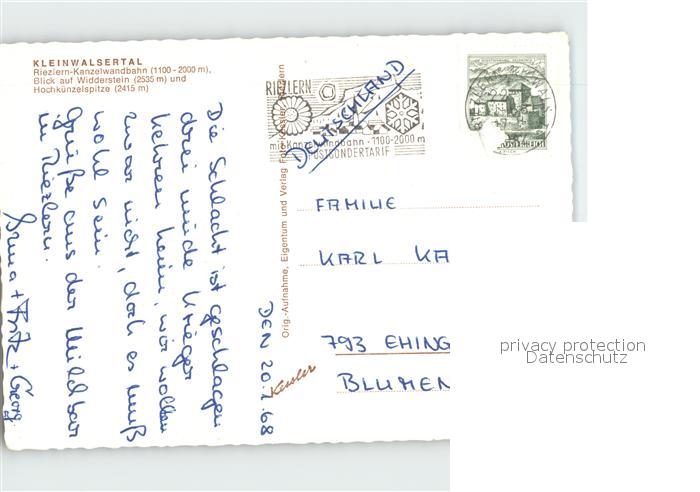 KLEINWALSERTAL
Riezlern-Kanzelwandbahn (1100-2000 m),
Blick auf Widderstein (2535 m) und
Hochkünzelspitze (2415 m)
Die Schlacht ist geschlagen
drei müde Krieger
kehren heim, wir wollen
zwar nicht, doch es muß
wohl sein.
Grüße aus der Milchbar
in Riezlern.
Irma + Fritz + Georg.
DEN 20.2.68
Orig.-Aufnahme, Eigentum und Verlag Foto Kessler, Riezlern
Kessler
RIEZLERN
mit Kanzelwandbahn - 1100-2000 m
POSTSONDERTARIF
DEUTSCHLAND
FAMILIE
KARL KA
793 EHING
BLUMEN
privacy protection
Datenschutz